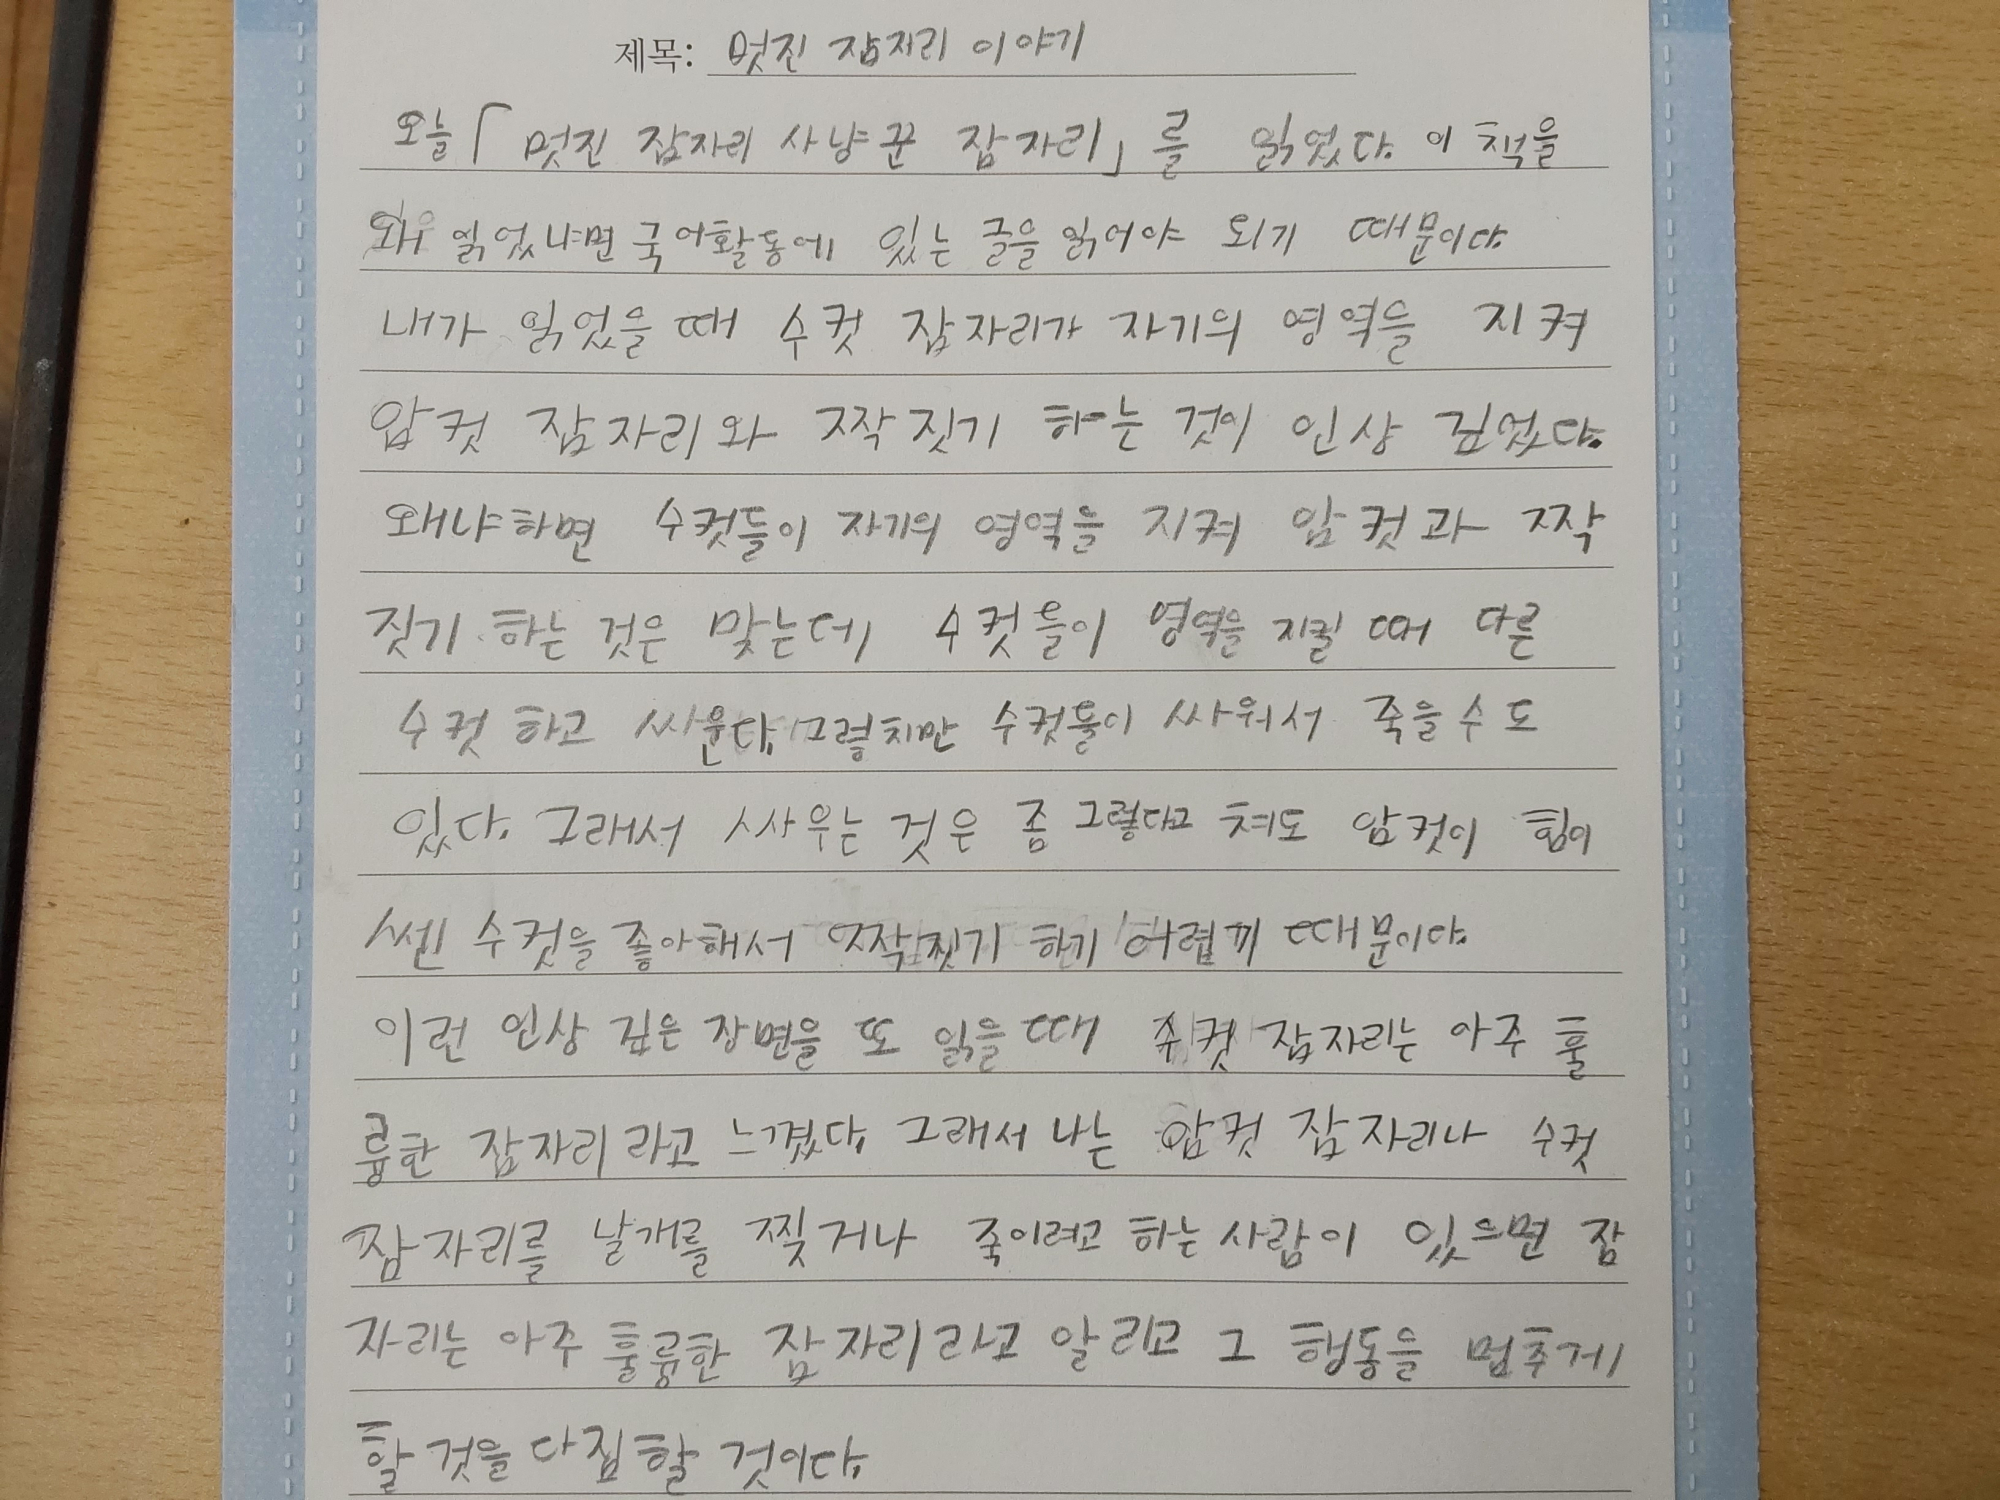 제목: 멋진 잠자리 이야기
오늘「멋진 잠자리 사냥꾼 잠자리」를 읽었다. 이 책을
왜 읽었냐면 국어활동에 있는 글을 읽어야 되기 때문이다.
내가 읽었을 때 수컷 잠자리가 자기의 영역을 지켜
암컷 잠자리와 짝짓기 하는 것이 인상 깊었다.
왜냐하면 수컷들이 자기의 영역을 지켜 암컷과 짝
짓기 하는 것은 맞는데 수컷들이 영역을 지킬 때 다른
수컷 하고 싸운다. 그렇치만 수컷들이 싸워서 죽을수도
있다. 그래서 싸우는 것은 좀 그렇다고 쳐도 암컷이 힘이
쎈 수컷을 좋아해서 짝짓기 하기 어렵끼 때문이다.
이런 인상 깊은 장면을 또 읽을 때 수컷 잠자리는 아주 훌
륭한 잠자리라고 느꼈다. 그래서 나는 암컷 잠자리나 수컷
잠자리를 날개를 찢거나 죽이려고 하는 사람이 있으면 잠
자리는 아주 훌륭한 잠자리라고 알리고 그 행동을 멈추게
할 것을 다짐할 것이다.